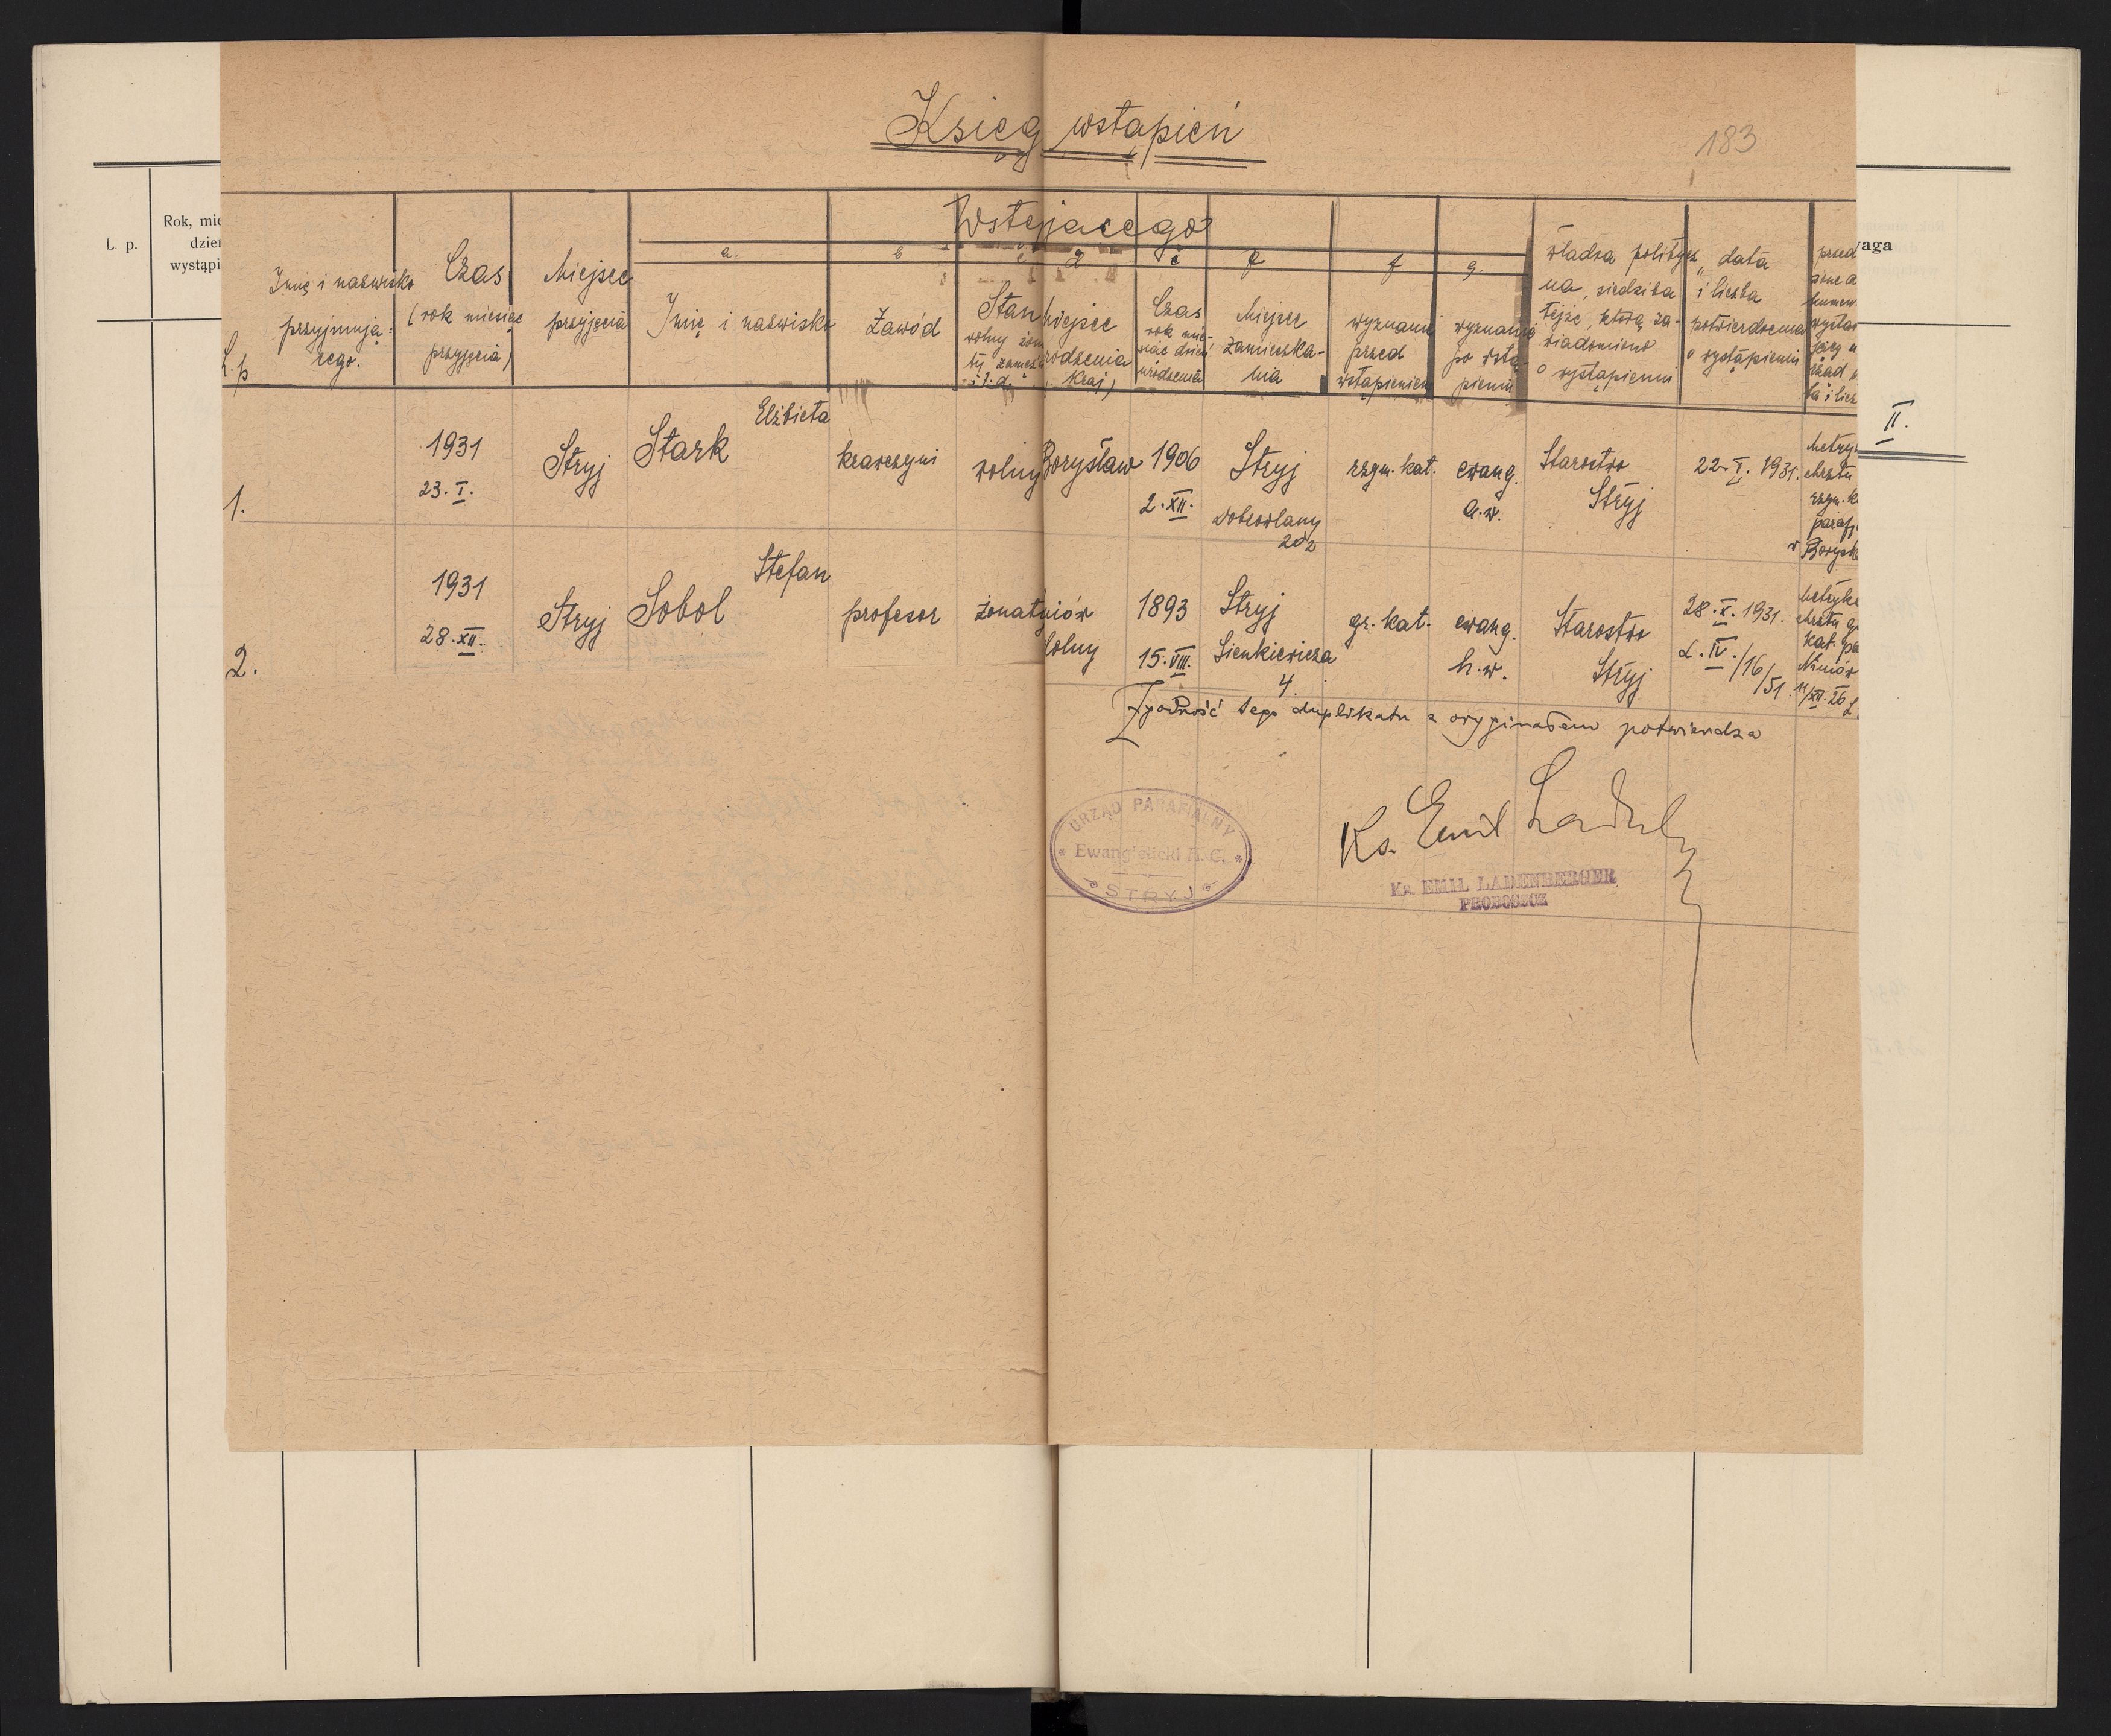 Księg wstąpień
183
L. p.
Rok, mie
dzień
wystąpi
waga
II.
Wstępjacego
a. b c d e f f g.
L.p
Imię i nazwisko
przyjmują=
cego.
Czas
(rok miesiąc
przyjęcia)
Miejsce
przyjęcia
Imię i nazwisko
Zawód
Stan
wolny żona
ty zamęż
i t. d.
Miejsce
rodzenia
(Kraj)
Czas
rok mie-
siąc dzień
urodzenia
Miejsce
zamieszka-
nia
wyznanie
przed
wstąpieniem
wyznanie
po wstą-
pieniu
władza politycz
na, siedziba
tejże, którą za-
wiadomiono
o wystąpieniu
data
i liczba
potwierdzenia
o wystąpieniu
1.
1931
23. I.
Stryj
Stark Elżbieta
krawczyni
wolny
Borysław
1906
2. XII.
Stryj
Dobrowlany
202
rzym. kat.
ewang.
a. w.
Starostwo
Stryj
22. I. 1931.
Metry
chrztu
rzym. k
paraf
w Borysł
2.
1931
28. XII.
Stryj
Sobol Stefan
profesor
żonaty
niów
dolny
1893
15. VIII.
Stryj
Sienkiewicza
4.
gr. kat.
ewang.
h. w.
Starostwo
Stryj
28. X. 1931.
L. IV. /16/51.
Metryka
chrztu g
kat. pa
Niniów
11/XII. 26 L.
Zgodność tego duplikatu z oryginałem potwierdza
URZĄD PARAFIALNY
* Ewangielicki A. C. *
STRYJ
Ks. Emil Ladenberger
Ks. EMIL LADENBERGER
PROBOSZCZ